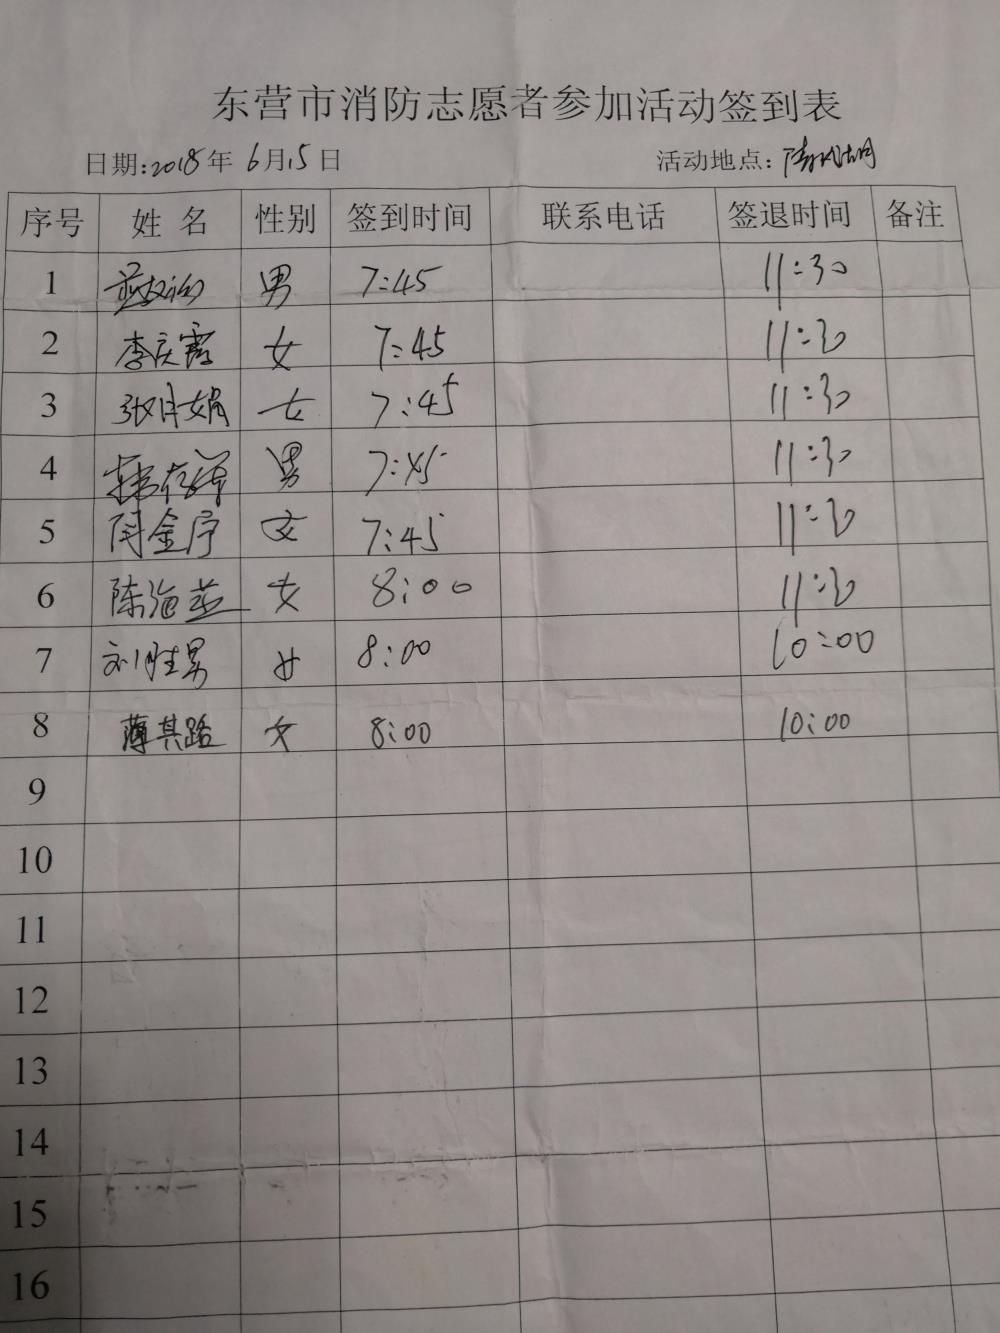 东营市消防志愿者参加活动签到表
日期:2018年 6月15日 活动地点: 清风湖
序号 姓名 性别 签到时间 联系电话 签退时间 备注
1 男 7:45 11:30
2 李庆霞 女 7:45 11:30
3 张月娟 女 7:45 11:30
4 韩存祥 男 7:45 11:30
5 闫金宁 女 7:45 11:30
6 陈海燕 女 8:00 11:30
7 刘胜男 女 8:00 10:00
8 薄其路 女 8:00 10:00
9
10
11
12
13
14
15
16